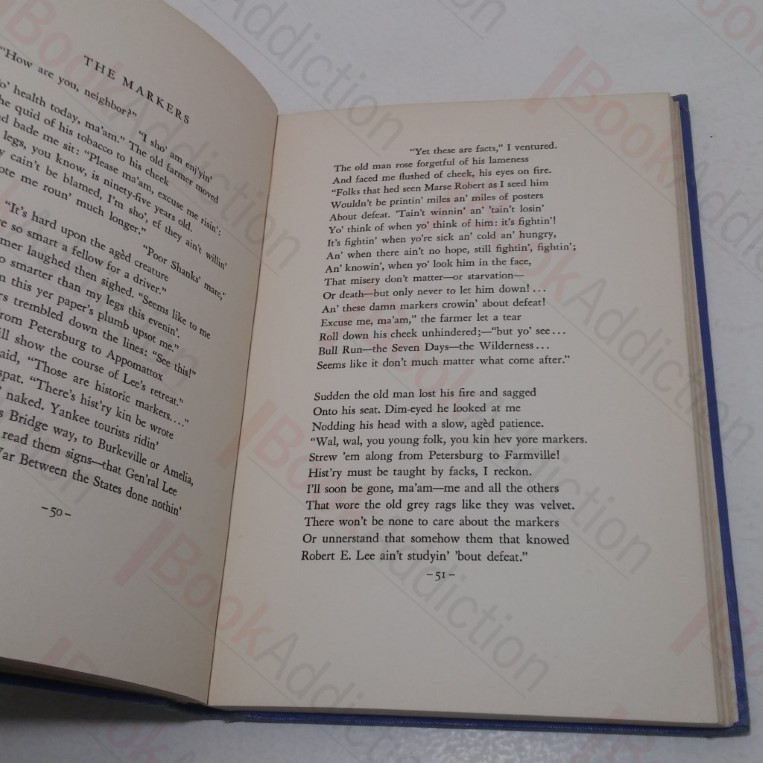 THE MARKERS
"How are you, neighbor?"
"I sho' am enj'yin'
o' health today, ma'am." The old farmer moved
he quid of his tobacco to his cheek
nd bade me sit: "Please ma'am, excuse me risin':
legs, you know, is ninety-five years old.
y cain't be blamed, I'm sho', ef they ain't willin'
ote me roun' much longer."
"Poor Shanks' mare,"
"It's hard upon the agèd creature
e so smart a fellow for a driver."
mer laughed then sighed. "Seems like to me
o smarter than my legs this evenin'.
n this yer paper's plumb upset me."
rs trembled down the lines: "See this!"
from Petersburg to Appomattox
ill show the course of Lee's retreat."
aid, "Those are historic markers...."
spat. "There's hist'ry kin be wrote
naked. Yankee tourists ridin'
s Bridge way, to Burkeville or Amelia,
read them signs—that Gen'ral Lee
War Between the States done nothin'
-50-
"Yet these are facts," I ventured.
The old man rose forgetful of his lameness
And faced me flushed of cheek, his eyes on fire.
"Folks that hed seen Marse Robert as I seed him
Wouldn't be printin' miles an' miles of posters
About defeat. 'Tain't winnin' an' 'tain't losin'
Yo' think of when yo' think of him: it's fightin'!
It's fightin' when yo're sick an' cold an' hungry,
An' when there ain't no hope, still fightin', fightin';
An' knowin', when yo' look him in the face,
That misery don't matter—or starvation—
Or death—but only never to let him down! ...
An' these damn markers crowin' about defeat!
Excuse me, ma'am," the farmer let a tear
Roll down his cheek unhindered;—"but yo' see ...
Bull Run—the Seven Days—the Wilderness ...
Seems like it don't much matter what come after."
Sudden the old man lost his fire and sagged
Onto his seat. Dim-eyed he looked at me
Nodding his head with a slow, agèd patience.
"Wal, wal, you young folk, you kin hev yore markers.
Strew 'em along from Petersburg to Farmville!
Hist'ry must be taught by facks, I reckon.
I'll soon be gone, ma'am—me and all the others
That wore the old grey rags like they was velvet.
There won't be none to care about the markers
Or unnerstand that somehow them that knowed
Robert E. Lee ain't studyin' 'bout defeat."
-51-
BookAddiction